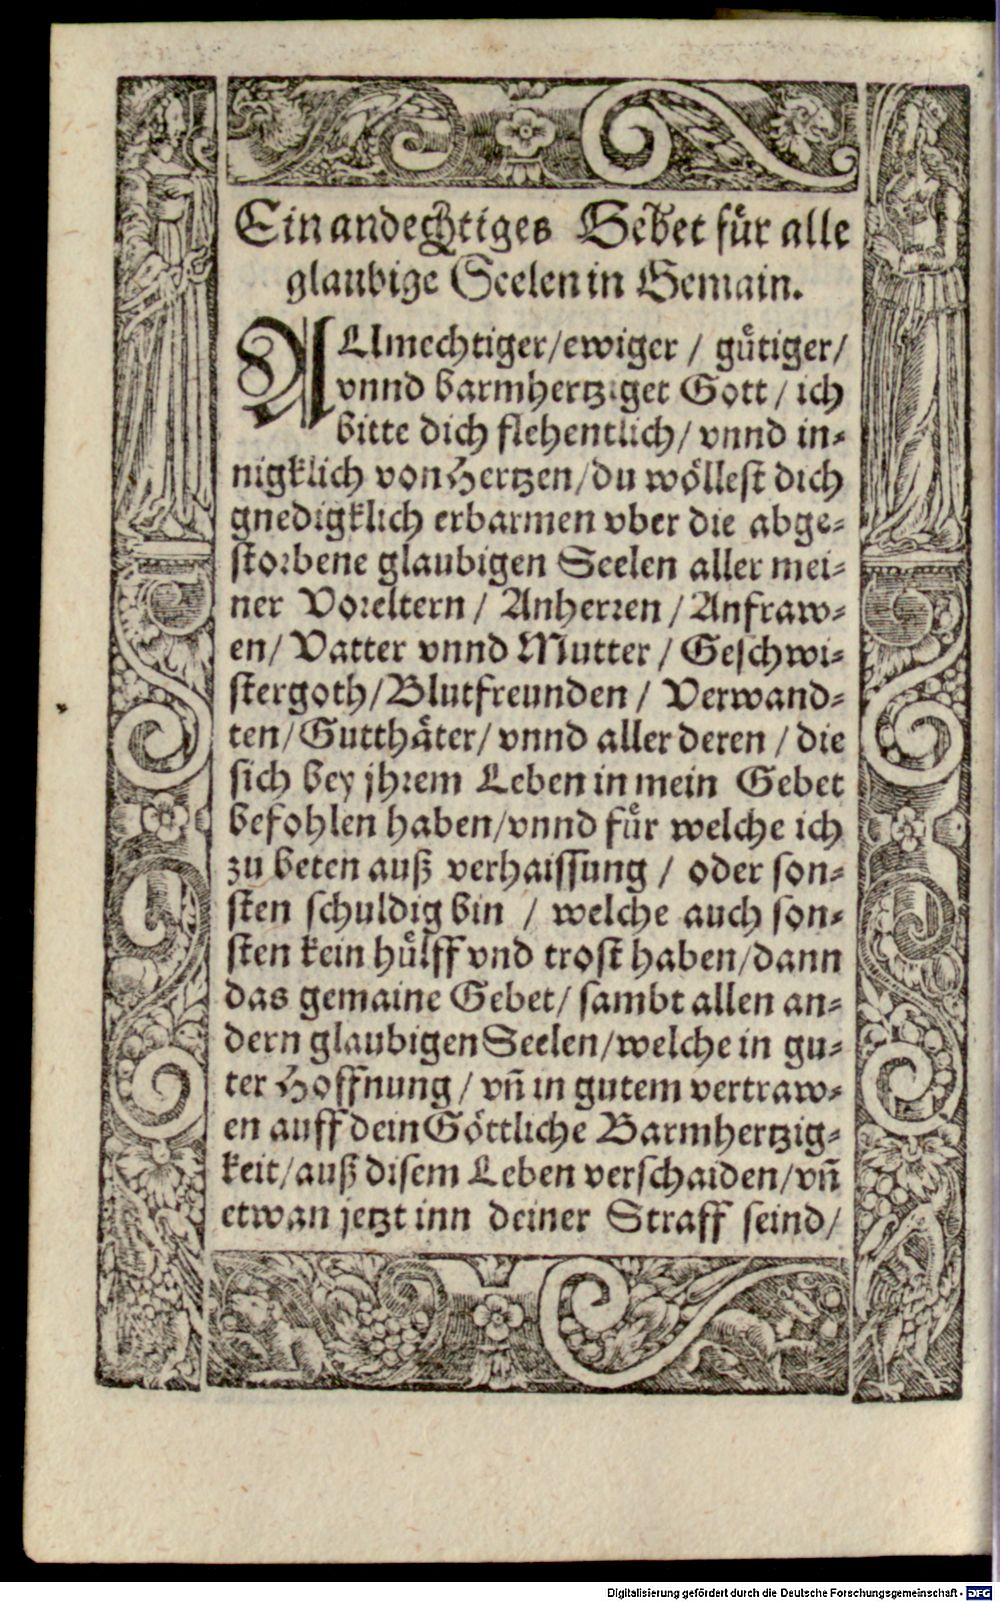 Ein andechtiges Gebet fuͤr alle
glaubige Seelen in Gemain.
ALlmechtiger/ewiger / guͤtiger/
vnnd barmhertziget Gott / ich
bitte dich flehentlich/ vnnd in⸗
nigklich von Hertzen/du woͤllest dich
gnedigklich erbarmen vber die abge⸗
storbene glaubigen Seelen aller mei⸗
ner Voreltern / Anherren / Anfraw⸗
en/ Vatter vnnd Mutter / Geschwi⸗
stergoth/Blutfreunden / Verwand⸗
ten/Gutthaͤter/ vnnd aller deren / die
sich bey jhrem Leben in mein Gebet
befohlen haben/vnnd fuͤr welche ich
zu beten auß verhaissung / oder son⸗
sten schuldig bin / welche auch son⸗
sten kein huͤlff vnd trost haben/dann
das gemaine Gebet/ sambt allen an⸗
dern glaubigen Seelen/welche in gu⸗
ter Hoffnung / vñ in gutem vertraw⸗
en auff dein Goͤttliche Barmhertzig⸗
keit/auß disem Leben verschaiden/vñ
etwan jetzt inn deiner Straff seind/
Digitalisierung gefördert durch die Deutsche Forschungsgemeinschaft - DFG